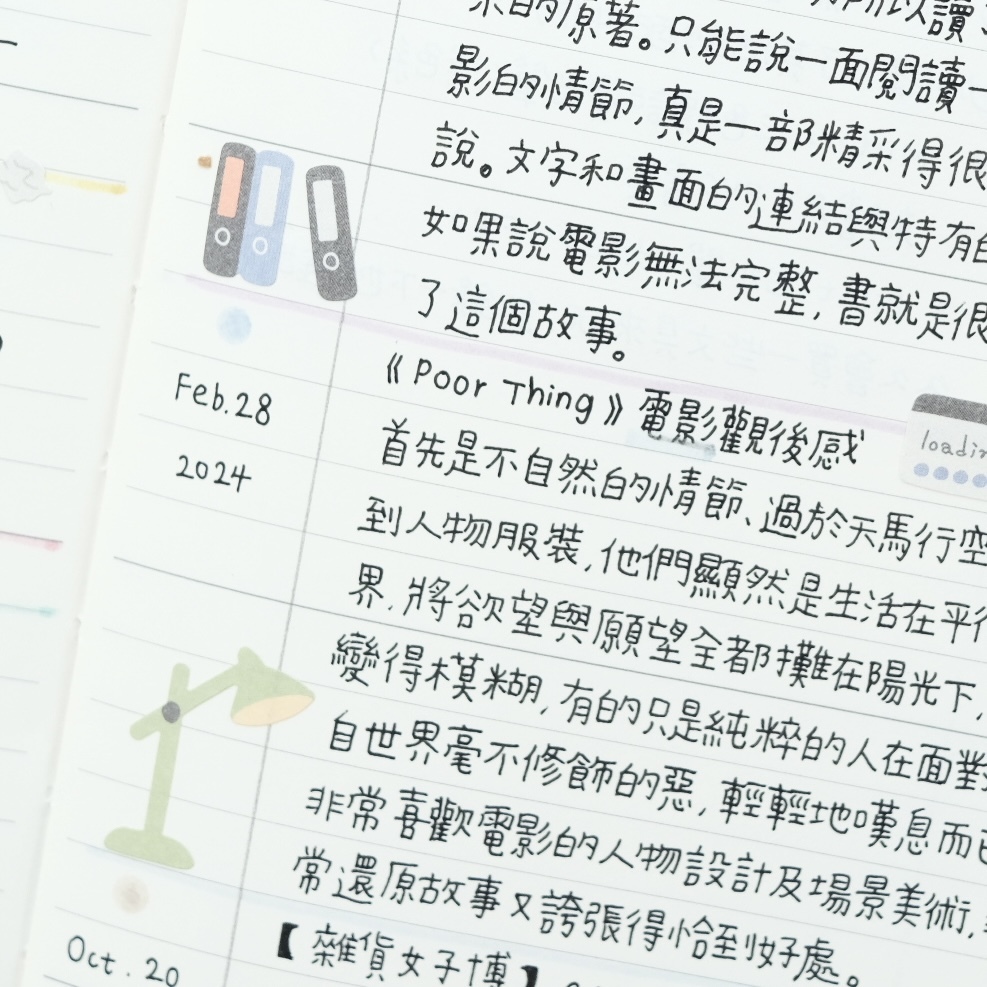 的原著。只能說一面閱讀
影的情節,真是一部精采得很
說。文字和畫面的連結與特有
如果說電影無法完整,書就是很
了這個故事。
Feb.28
2024
《Poor Thing》電影觀後感
loadin
首先是不自然的情節、過於天馬行空
到人物服裝,他們顯然是生活在平行
界,將欲望與願望全都攤在陽光下,
變得模糊,有的只是純粹的人在面對
自世界毫不修飾的惡,輕輕地嘆息而已
非常喜歡電影的人物設計及場景美術,
常還原故事又誇張得恰到好處。
Oct.20
【雜貨女子博】